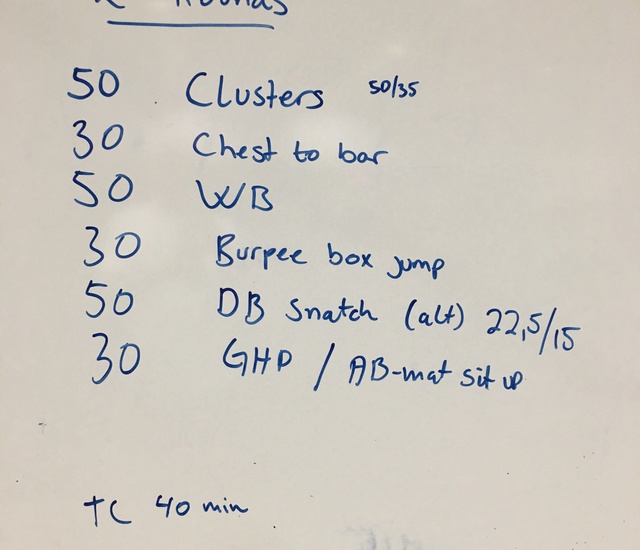 Rounds
50 Clusters 50/35
30 Chest to bar
50 WB
30 Burpee box jump
50 DB Snatch (alt) 22,5/15
30 GHD / AB-mat sit up
TC 40 min